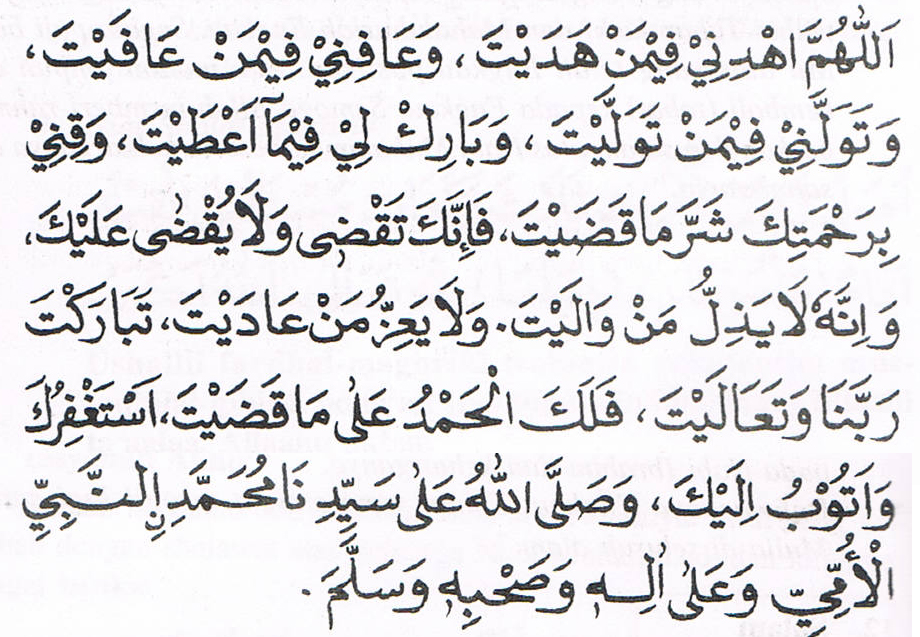 اَللّٰهُمَّ اهْدِنِيْ فِيْمَنْ هَدَيْتَ، وَعَافِنِيْ فِيْمَنْ عَافَيْتَ،
وَتَوَلَّنِيْ فِيْمَنْ تَوَلَّيْتَ، وَبَارِكْ لِيْ فِيْمَآ اَعْطَيْتَ، وَقِنِيْ
بِرَحْمَتِكَ شَرَّ مَا قَضَيْتَ، فَاِنَّكَ تَقْضِى وَلَا يُقْضٰى عَلَيْكَ،
وَاِنَّهُ لَا يَذِلُّ مَنْ وَالَيْتَ. وَلَا يَعِزُّ مَنْ عَادَيْتَ، تَبَارَكْتَ
رَبَّنَا وَتَعَالَيْتَ، فَلَكَ الْحَمْدُ عَلٰى مَا قَضَيْتَ، اَسْتَغْفِرُكَ
وَاَتُوْبُ اِلَيْكَ، وَصَلَّى اللّٰهُ عَلٰى سَيِّدِنَا مُحَمَّدٍ اِلنَّبِيِّ
الْاُمِّيِّ وَعَلٰى اٰلِهٖ وَصَحْبِهٖ وَسَلَّمَ.